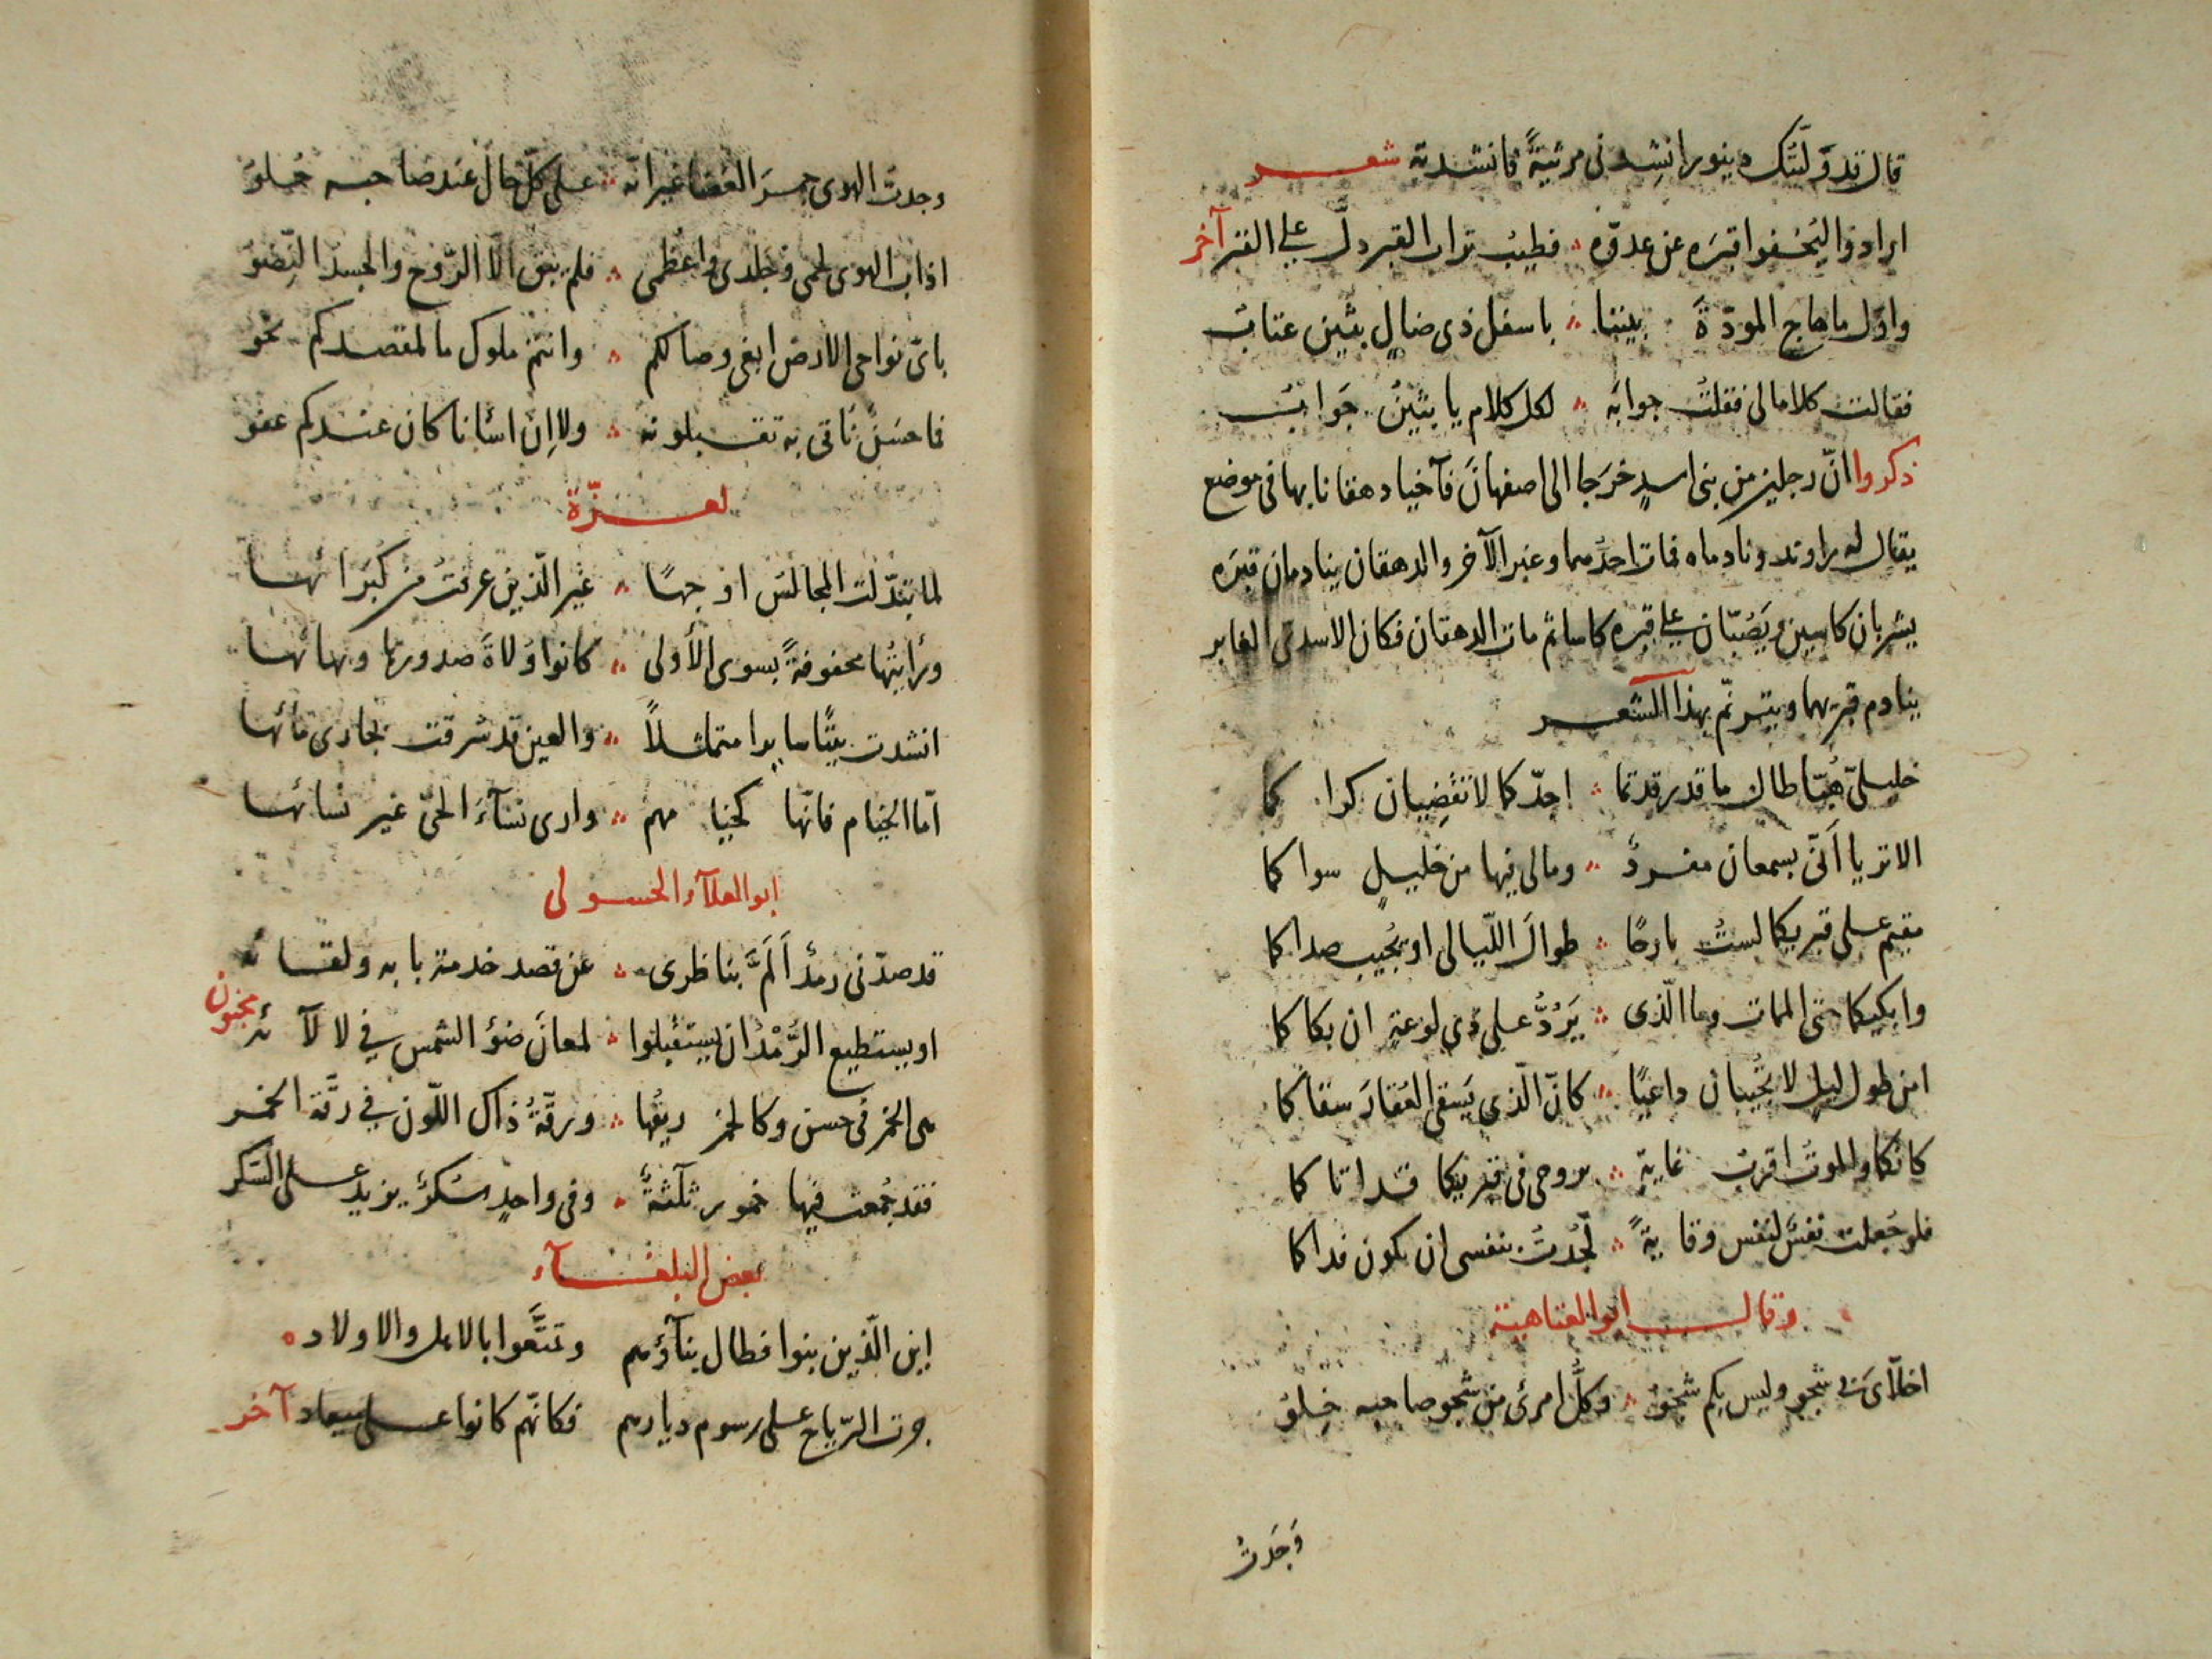 قال قد ولّتك دينورا انشدنى مرثيةً فانشدته شعر
ارادوا ليخفوا قبره عن عدوّه ؞ فطيبُ تراب القبر دلّ على القبر آخر
واوّل ما هاج المودّةَ بيننا ؞ باسفل ذى ضالٍ بثين عتابُ
فقالت كلاما لى فقلتُ جوابَه ؞ لكل كلام يا بثينُ جَوابُ
ذكروا انّ رجلين من بنى اسدٍ خرَجا الى اصفهانَ فآخيا دهقانا بها فى موضع
يقال له راوند ونادماه فمات احدُهما وغبر الآخر والدهقان ينادمان قبرَه
يشربان كاسين ويَصُبّان على قبره كاسا ثم مات الدهقان فكان الاسدىّ الغابر
ينادم قبريهما ويترنّم بهذا الشعر
خليلىّ هُبّا طال ما قد رقدتما ؞ اجدّكما لا تقضِيان كراكما
الا تريا أنّى بسمعان مفردٌ ؞ ومالى فيها من خليلٍ سواكما
مقيم على قبريكما لستُ بارحًا ؞ طوالَ اللّيالى او يُجيب صداكما
وابكيكما حتى الممات وما الّذى ؞ يَرُدُّ على ذى لوعةٍ ان بكاكما
امن طول ليل لا تُجيبان داعيًا ؞ كانّ الّذى يَسقى العُقارَ سقاكما
كانكما والموتُ اقربُ غايةٍ ؞ بروحى فى قبريكما قد اتاكما
فلو جُعلت نفسٌ لنفس وقايةً ؞ لجُدتُ بنفسى ان تكون فداكما
وقال ابو العتاهية
اخلّاىَ بى شجو وليس بكم شجوُ ؞ وكلُّ امرئ من شجو صاحبه خِلوُ
وَجَدتُ
وجدت الهوى جمرَ الغضا غير انّه ؞ على كلّ حال عند صاحبه حُلوُ
اذاب الهوى لحمى وجلدى واعظمى ؞ فلم يبق الّا الرّوح والجسدُ النِّضوُ
باىّ نواحى الارض ابغى وصالكم ؞ وانتم ملوك ما لمقصدكم نحو
فاحسَنُ نأتى به تقبلونه ؞ ولا اِن اسأنا كان عندكم عفو
لعزّة
لما تبدّلت المجالسُ اوجهًا ؞ غير الّذين عرفتُ من كُبَرائها
ورأيتُها محفوفةً بسوى الأُولى ؞ كانوا وُلاةَ صدورها وبهائها
انشدت بيتًا سايرا متمثلاً ؞ والعين قد شرقت بجارى مائها
امّا الخيام فانّها كخيامهم ؞ وارى نسآءَ الحىّ غير نسائها
ابو العلآء الحسولى
قد صدّنى رمدٌ اَلَمَّ بناظرى ؞ عن قصد خدمة بابه ولقائه
او يستطيع الرُّمْدُ ان يستقبلوا ؞ لمعانَ ضوُ الشمس فى لالآئه مجنون
هى الخمر فى حسن وكالخمر ريقُها ؞ ورقّةُ ذاك اللّون فى رقّة الخمر
فقد جُمعت فيها خمور ثلثةٌ ؞ وفى واحدٍ سُكرٌ يزيد على السّكر
بعض البلغآء
اين الّذين بنوا فطال بنآؤهم وتمتَّعوا بالاهل والاولاد
جرت الرّياح على رسوم ديارهم فكانّهم كانوا على ميعاد آخر